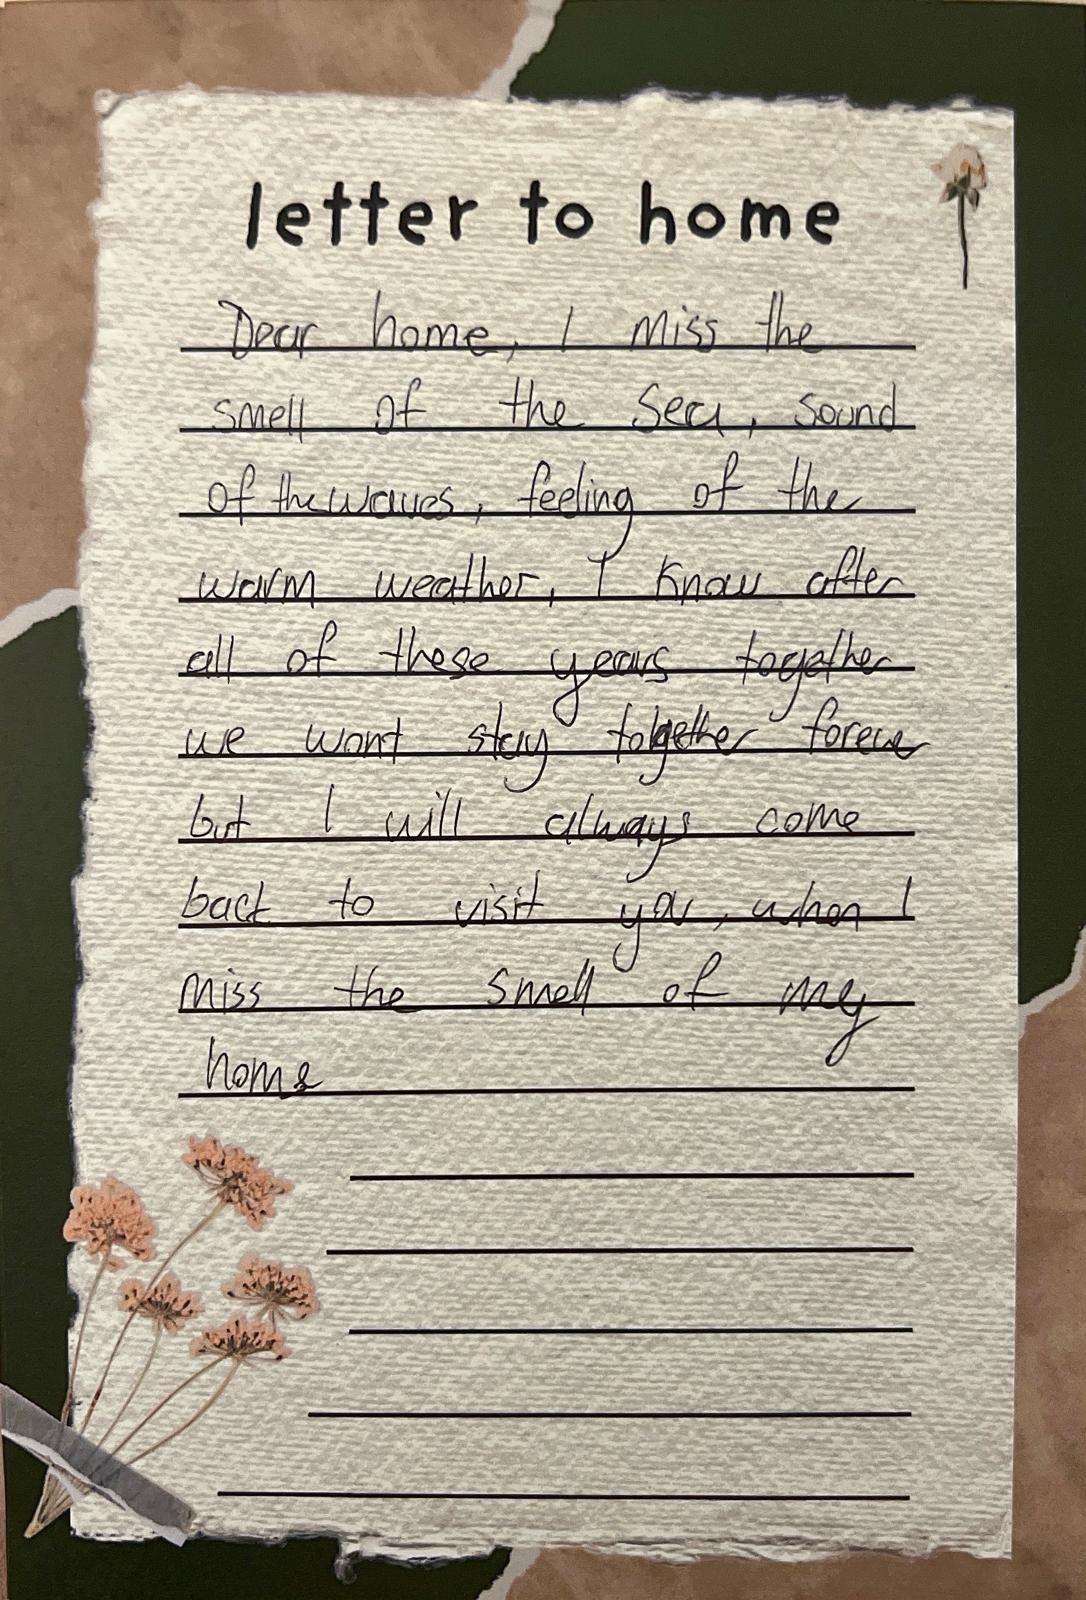 letter to home
Dear home, I miss the
smell of the sea, sound
of the waves, feeling of the
warm weather, I know after
all of these years together
we wont stay together forever
but I will always come
back to visit you, when I
miss the smell of my
home